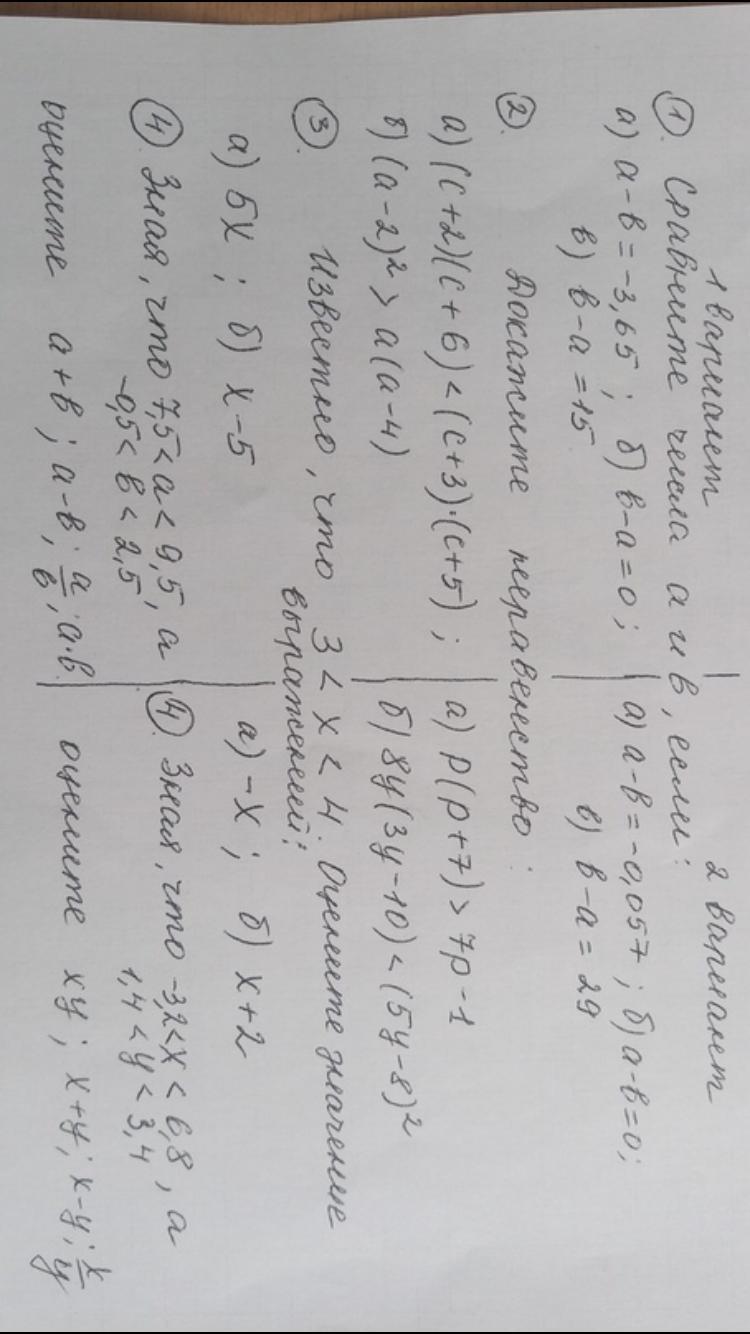 1 вариант 2 вариант
① Сравните числа а и в, если:
а) а-в = -3,65 ; б) в-а = 0 ; а) а-в = -0,057 ; б) а-в = 0 ;
в) в-а = 15 в) в-а = 29
② Докажите неравенство :
а) (с+2)(с+6) < (с+3)·(с+5) ; а) р(р+7) > 7р-1
б) (а-2)² > а(а-4) б) 8у(3у-10) < (5у-8)²
③ Известно, что 3 < х < 4. Оцените значение
выражений:
а) 5х ; б) х-5 а) -х ; б) х+2
④ Зная, что 7,5 < а < 9,5, а ④ Зная, что -3,2 < х < 6,8, а
-0,5 < в < 2,5 1,4 < у < 3,4
оцените а+в ; а-в ; а/в ; а·в оцените ху ; х+у ; х-у ; х/у